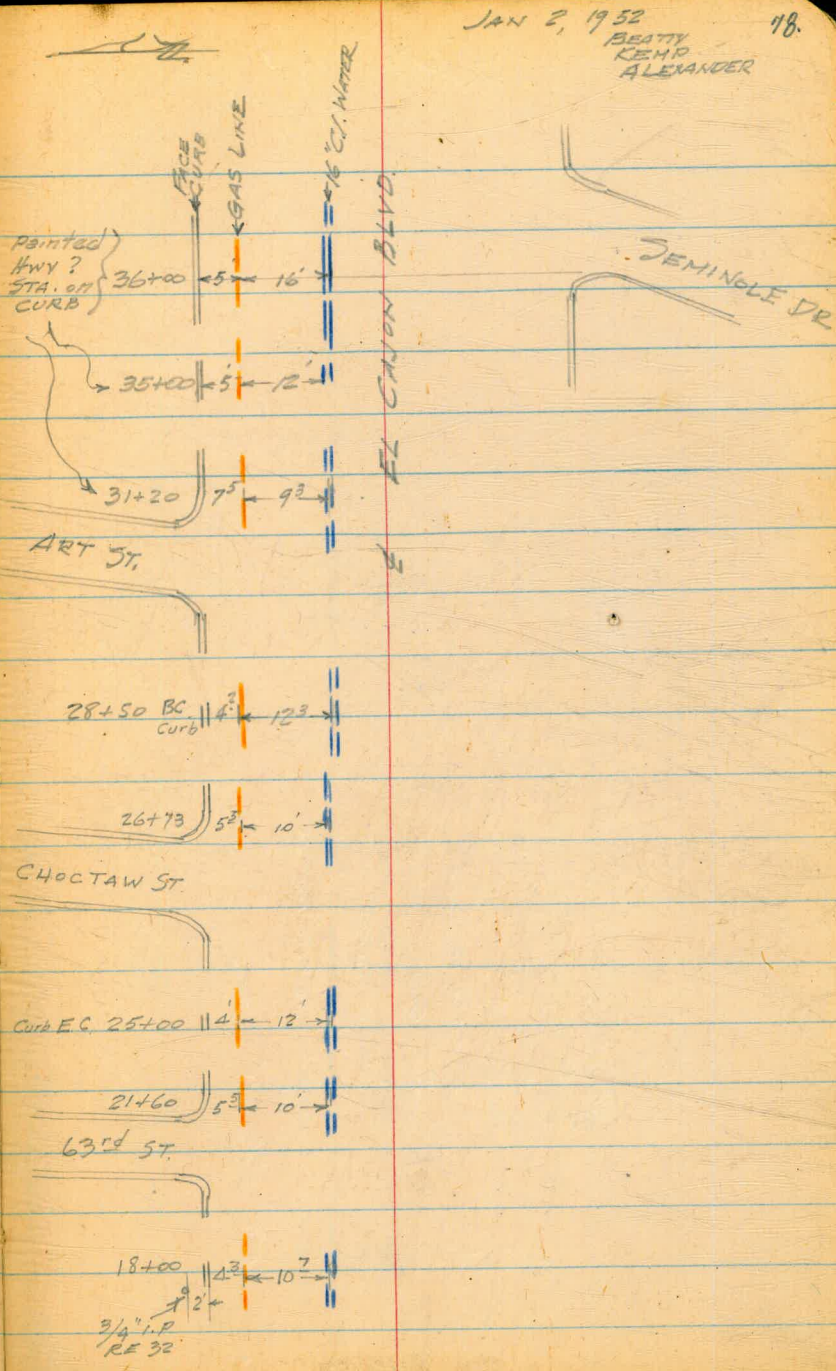 JAN 2, 1952
78.
BEATTY
KEMP
ALEXANDER
FACE
CURB
GAS LINE
16" C.I. WATER
EL CAJON BLVD.
SEMINOLE DR
Painted
HWY ?
STA. on
CURB
36+00 5' 16'
35+00 5' 12'
31+20 7⁵ 9³
ART ST.
28+50 BC
Curb
4² 12³
26+73 10'
CHOCTAW ST
Curb E.C. 25+00 4' 12'
21+60 5⁵ 10'
63rd ST.
18+00 4³ 10⁷
2'
3/4" I.P
RE 32